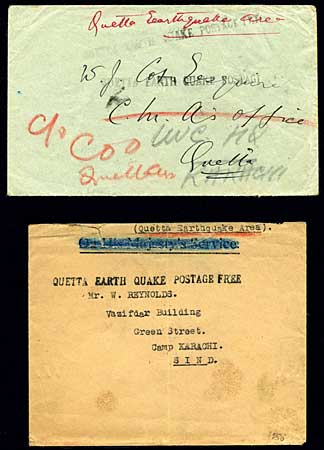 Quetta Earthquake area
QUAKE POSTAGE
W. J. Cox Esquire
QUETTA EARTH QUAKE POSTAGE
Office
c/o COO
Quetta
Quetta
(Quetta Earthquake Area).
On His Majesty's Service.
QUETTA EARTH QUAKE POSTAGE FREE
Mr. W. REYNOLDS.
Vazifdar Building
Green Street.
Camp KARACHI.
S I N D.